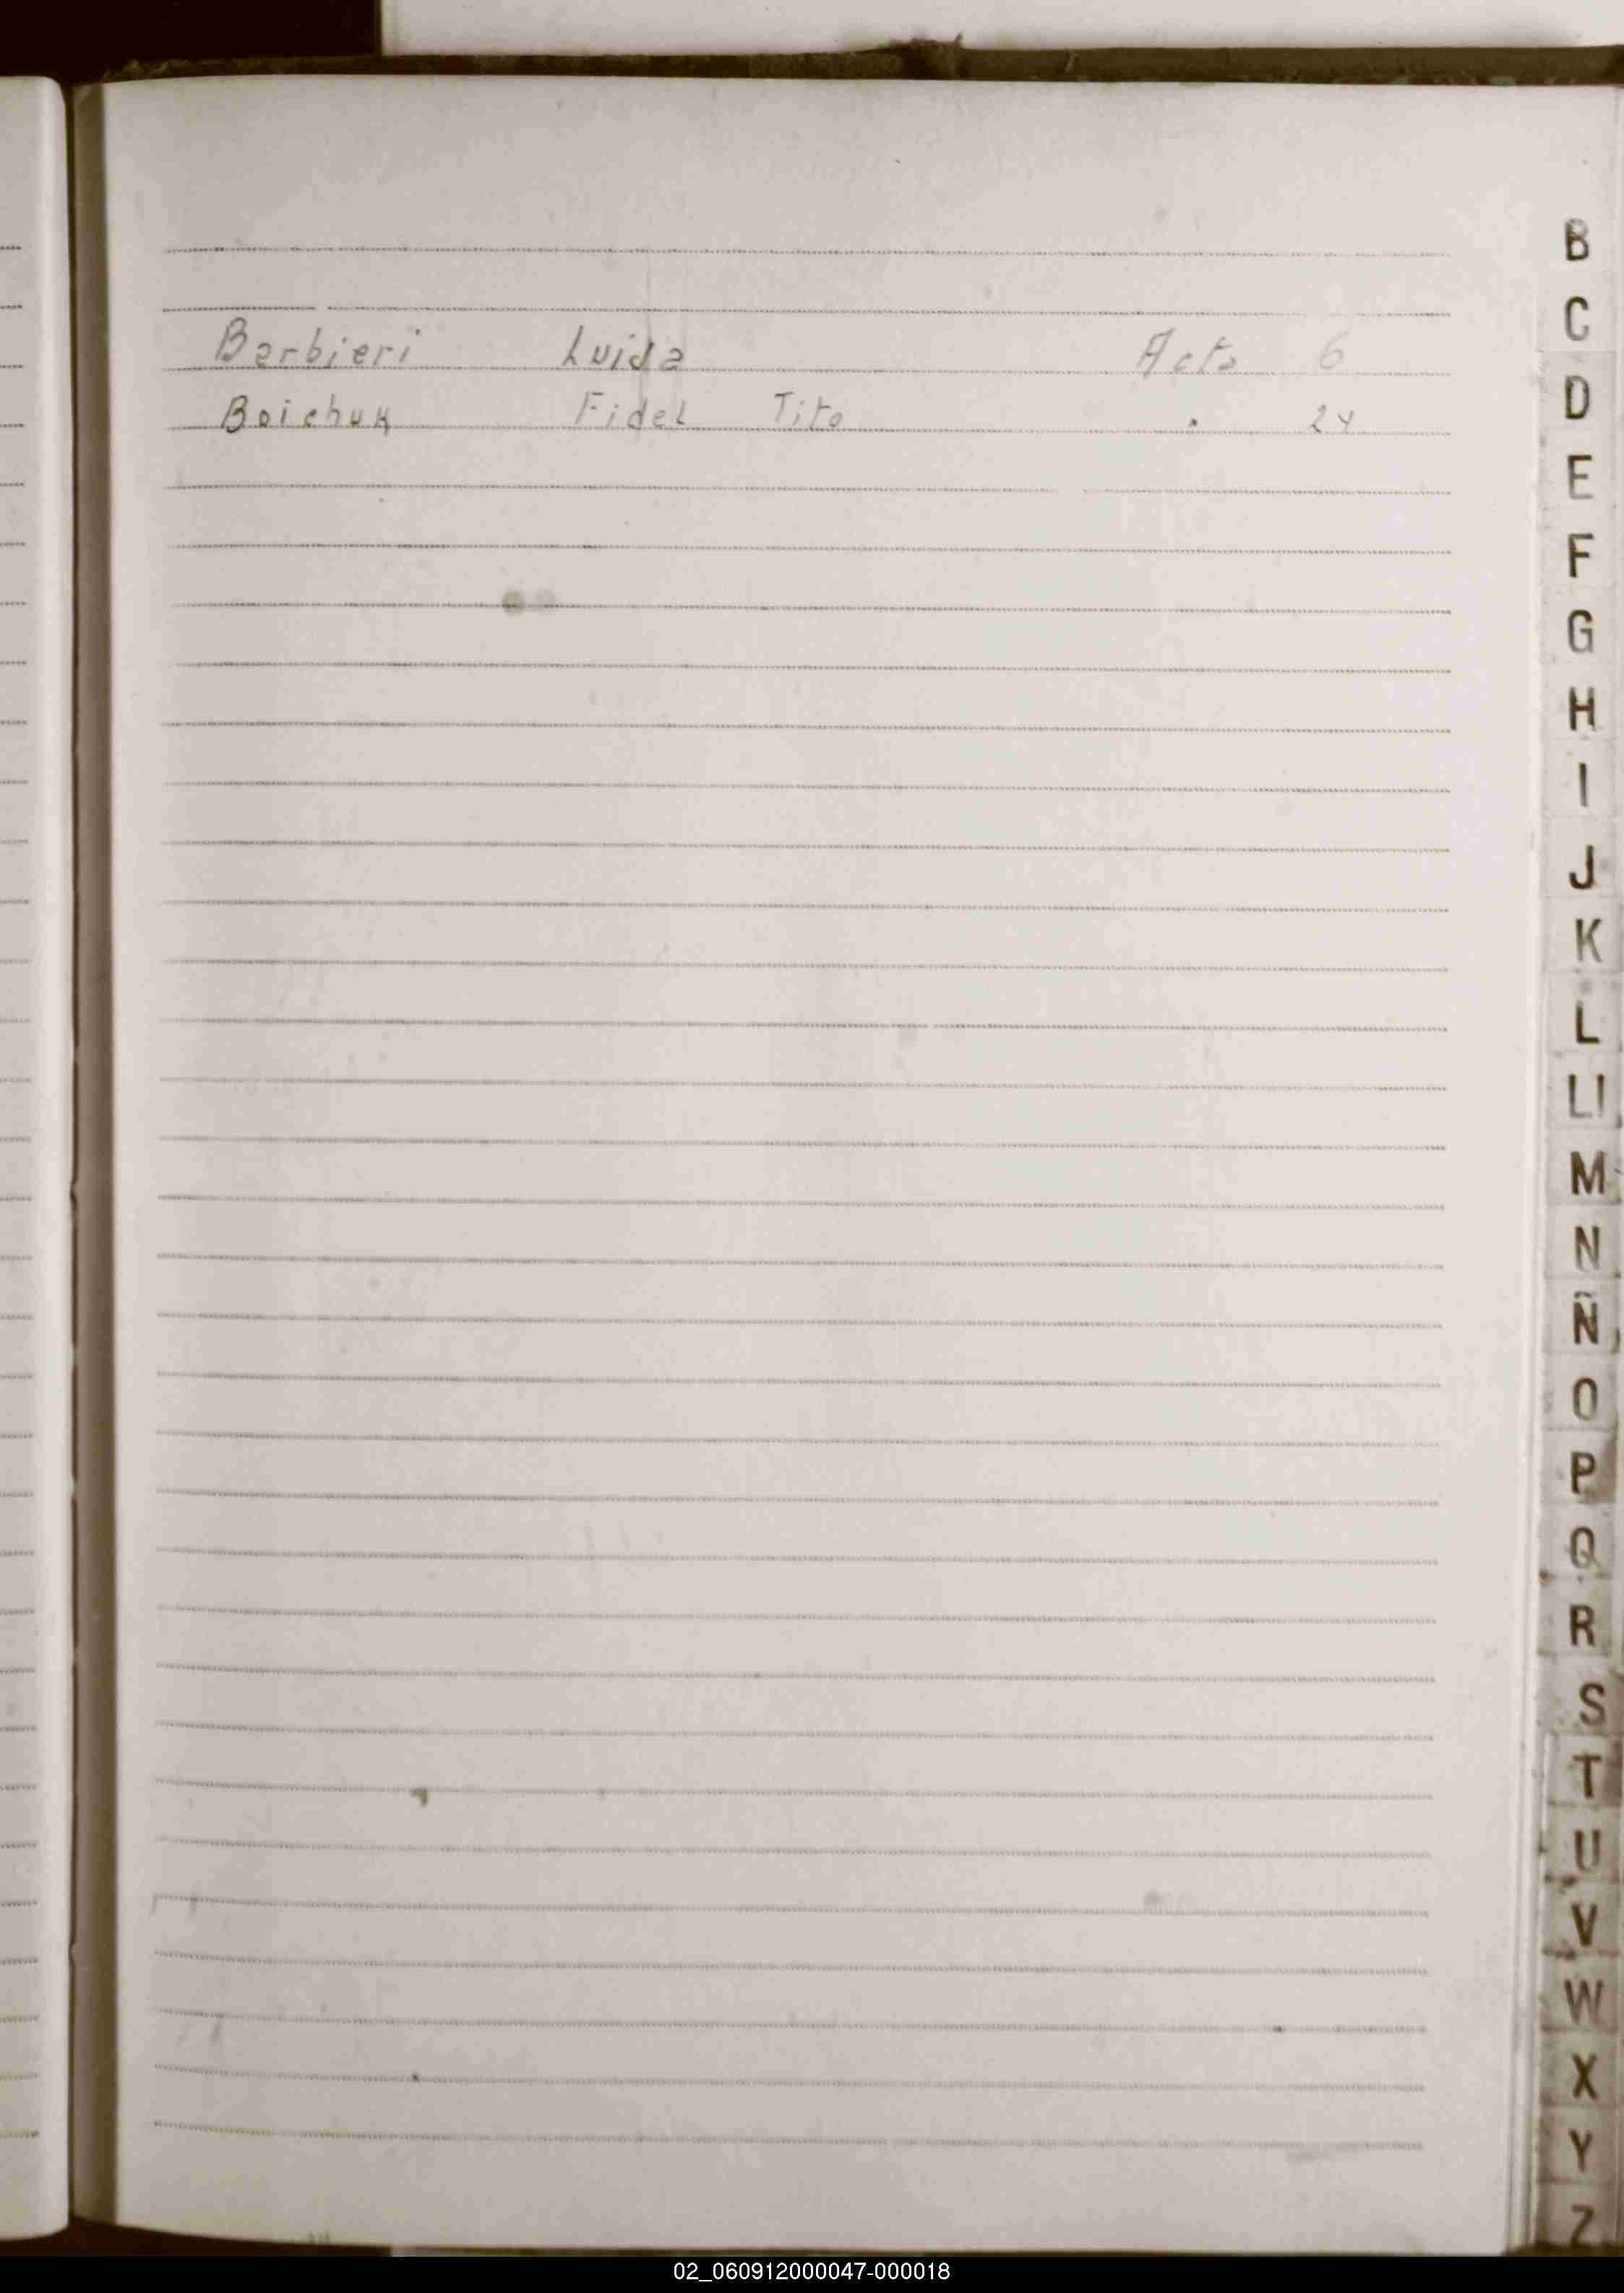 Barbieri Luisa Acta 6
Boichuk Fidel Tito " 24
B
C
D
E
F
G
H
I
J
K
L
Ll
M
N
Ñ
O
P
Q
R
S
T
U
V
W
X
Y
Z
02_060912000047-000018